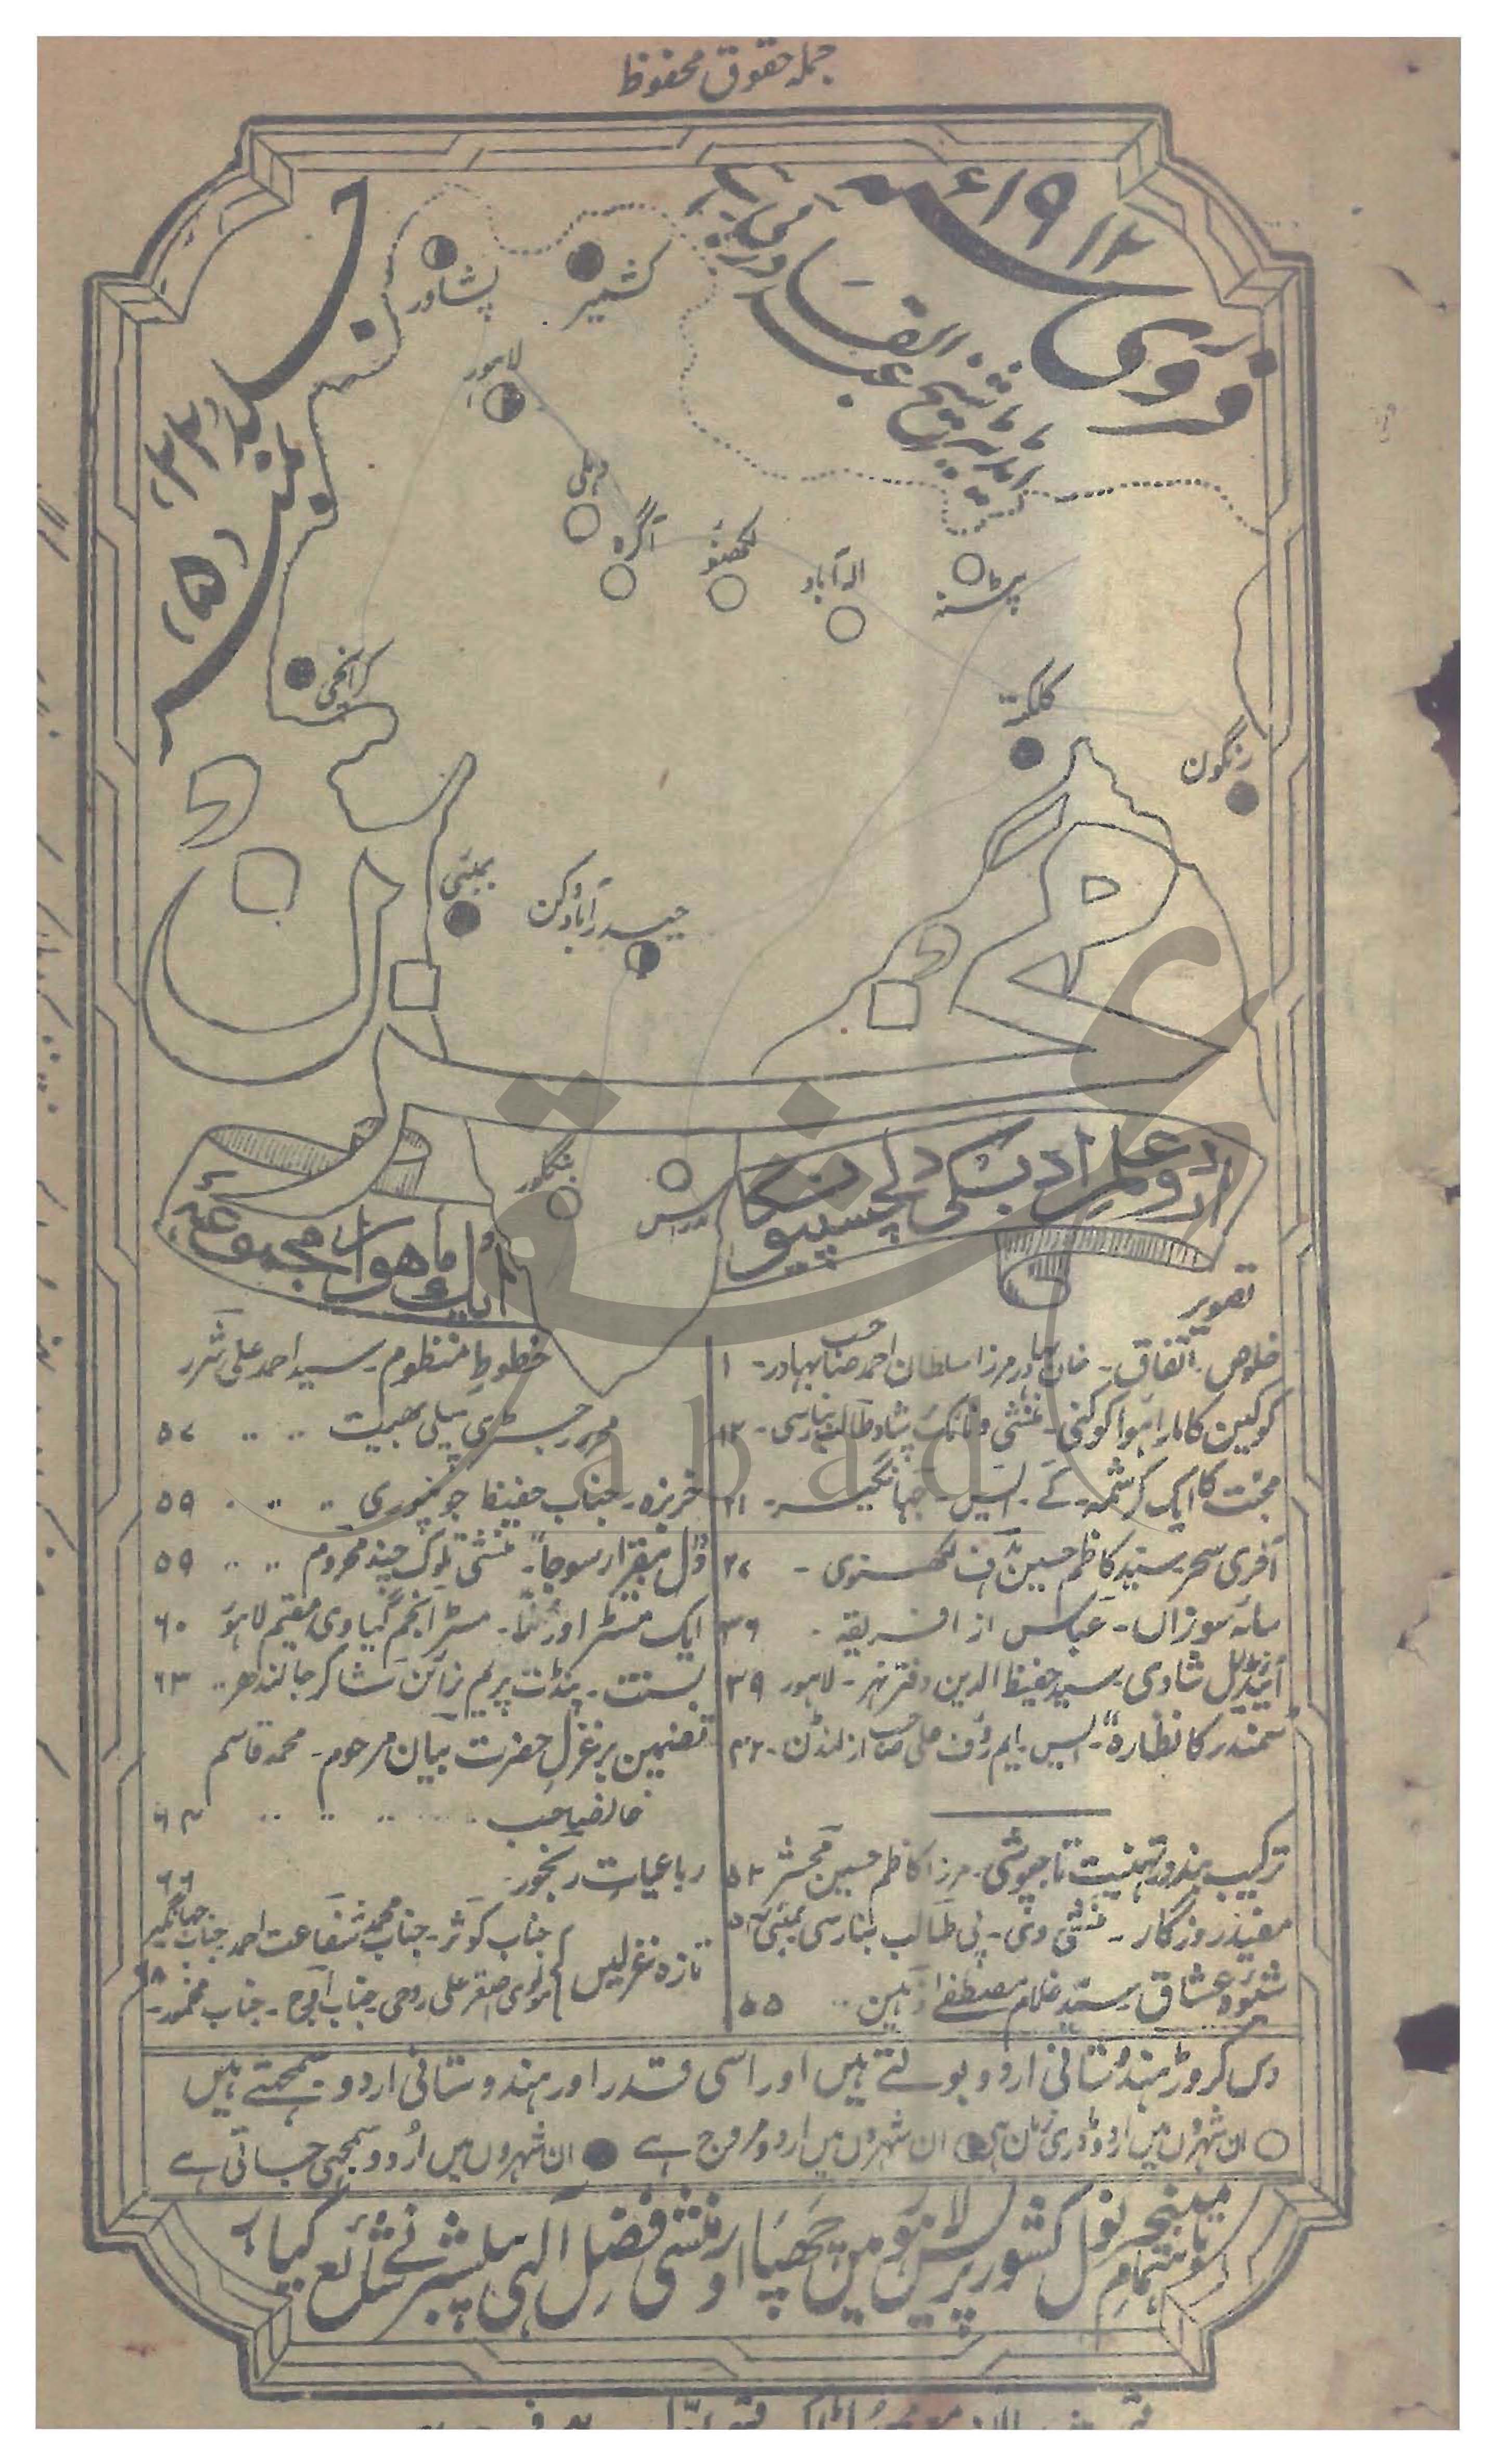 جملہ حقوق محفوظ
فروری ۱۹۱۲ء
ایڈیٹر شیخ عبدالقادر بی۔اے
جلد ۲۲
نمبر (۵)
پشاور
کشمیر
لاہور
دہلی
آگرہ
لکھنؤ
الہ آباد
پٹنہ
کرانچی
کلکتہ
رنگون
بمبئی
حیدرآباد دکن
بنگلور
مدراس
مخزن
اردو علم ادب کی دلچسپیوں کا
ایک ماہوار مجموعہ
تصویر
خلوص۔ اتفاق۔ خان بہادر مرزا سلطان احمد صاحب بہادر۔ ۱
کوکین کا مارا ہوا کوکنی۔ منشی ونائک پرشاد طالب بنارسی۔ ۱۲
محبت کا ایک کرشمہ۔ کے۔ ایس۔ جہانگیر۔ ۲۱
آخری سحر۔ سید کاظم حسین لکھنوی ۔ ۲۷
ساز سوزاں۔ عباس از افریقہ ۔ ۳۶
آئیڈیل شادی۔ سید حفیظ الدین دفتر نہر۔ لاہور ۳۹
"سمندر کا نظارہ"۔ ایس۔ ایم رؤف علی صاحب از لنڈن۔ ۴۲
ترکیب بند در تہنیت تاجپوشی۔ مرزا کاظم حسین محشر ۵۲
مفیدِ روزگار ۔ منشی وی۔ پی طالب بنارسی بمبئی
شیوۂ عشاق۔ سید غلام مصطفےٰ ذہین .. ۵۵
خطوطِ منظوم۔ سید احمد علی شرر
محرر رجسٹری پیلی بھیت .. .. ۵۷
خربزہ۔ جناب حفیظ جونپوری .. .. ۵۹
"دل بیقرار سوجا"۔ منشی تلوک چند محروم .. .. ۵۹
ایک مسٹر اور مُلّا۔ مسٹر انجم گیاوی مقیم لاہور ۶۰
بسنت۔ پنڈت پریم نرائن شاکر جالندھر.. ۶۳
تضمین بر غزل حضرت بیان مرحوم۔ محمد قاسم
خاں صاحب .. .. .. ۶۴
رباعیات رنجور۔ ۶۶
تازہ غزلیں جناب کوثر۔ جناب محمد شفاعت احمد۔ جناب جہانگیر
مولوی اصغر علی روحی۔ جناب۔ جناب مخمور۔ ۶۸
دس کروڑ ہندوستانی اردو بولتے ہیں اور اسی قدر اور ہندوستانی اردو سمجھتے ہیں
ان شہروں میں اردو مادری زبان ہے ان شہروں میں اردو مروج ہے ان شہروں میں اُردو سمجھی جاتی ہے
باہتمام مینیجر نول کشور پریس لاہور میں چھپا اور منشی فضل الٰہی پبلشر نے شائع کیا
abad